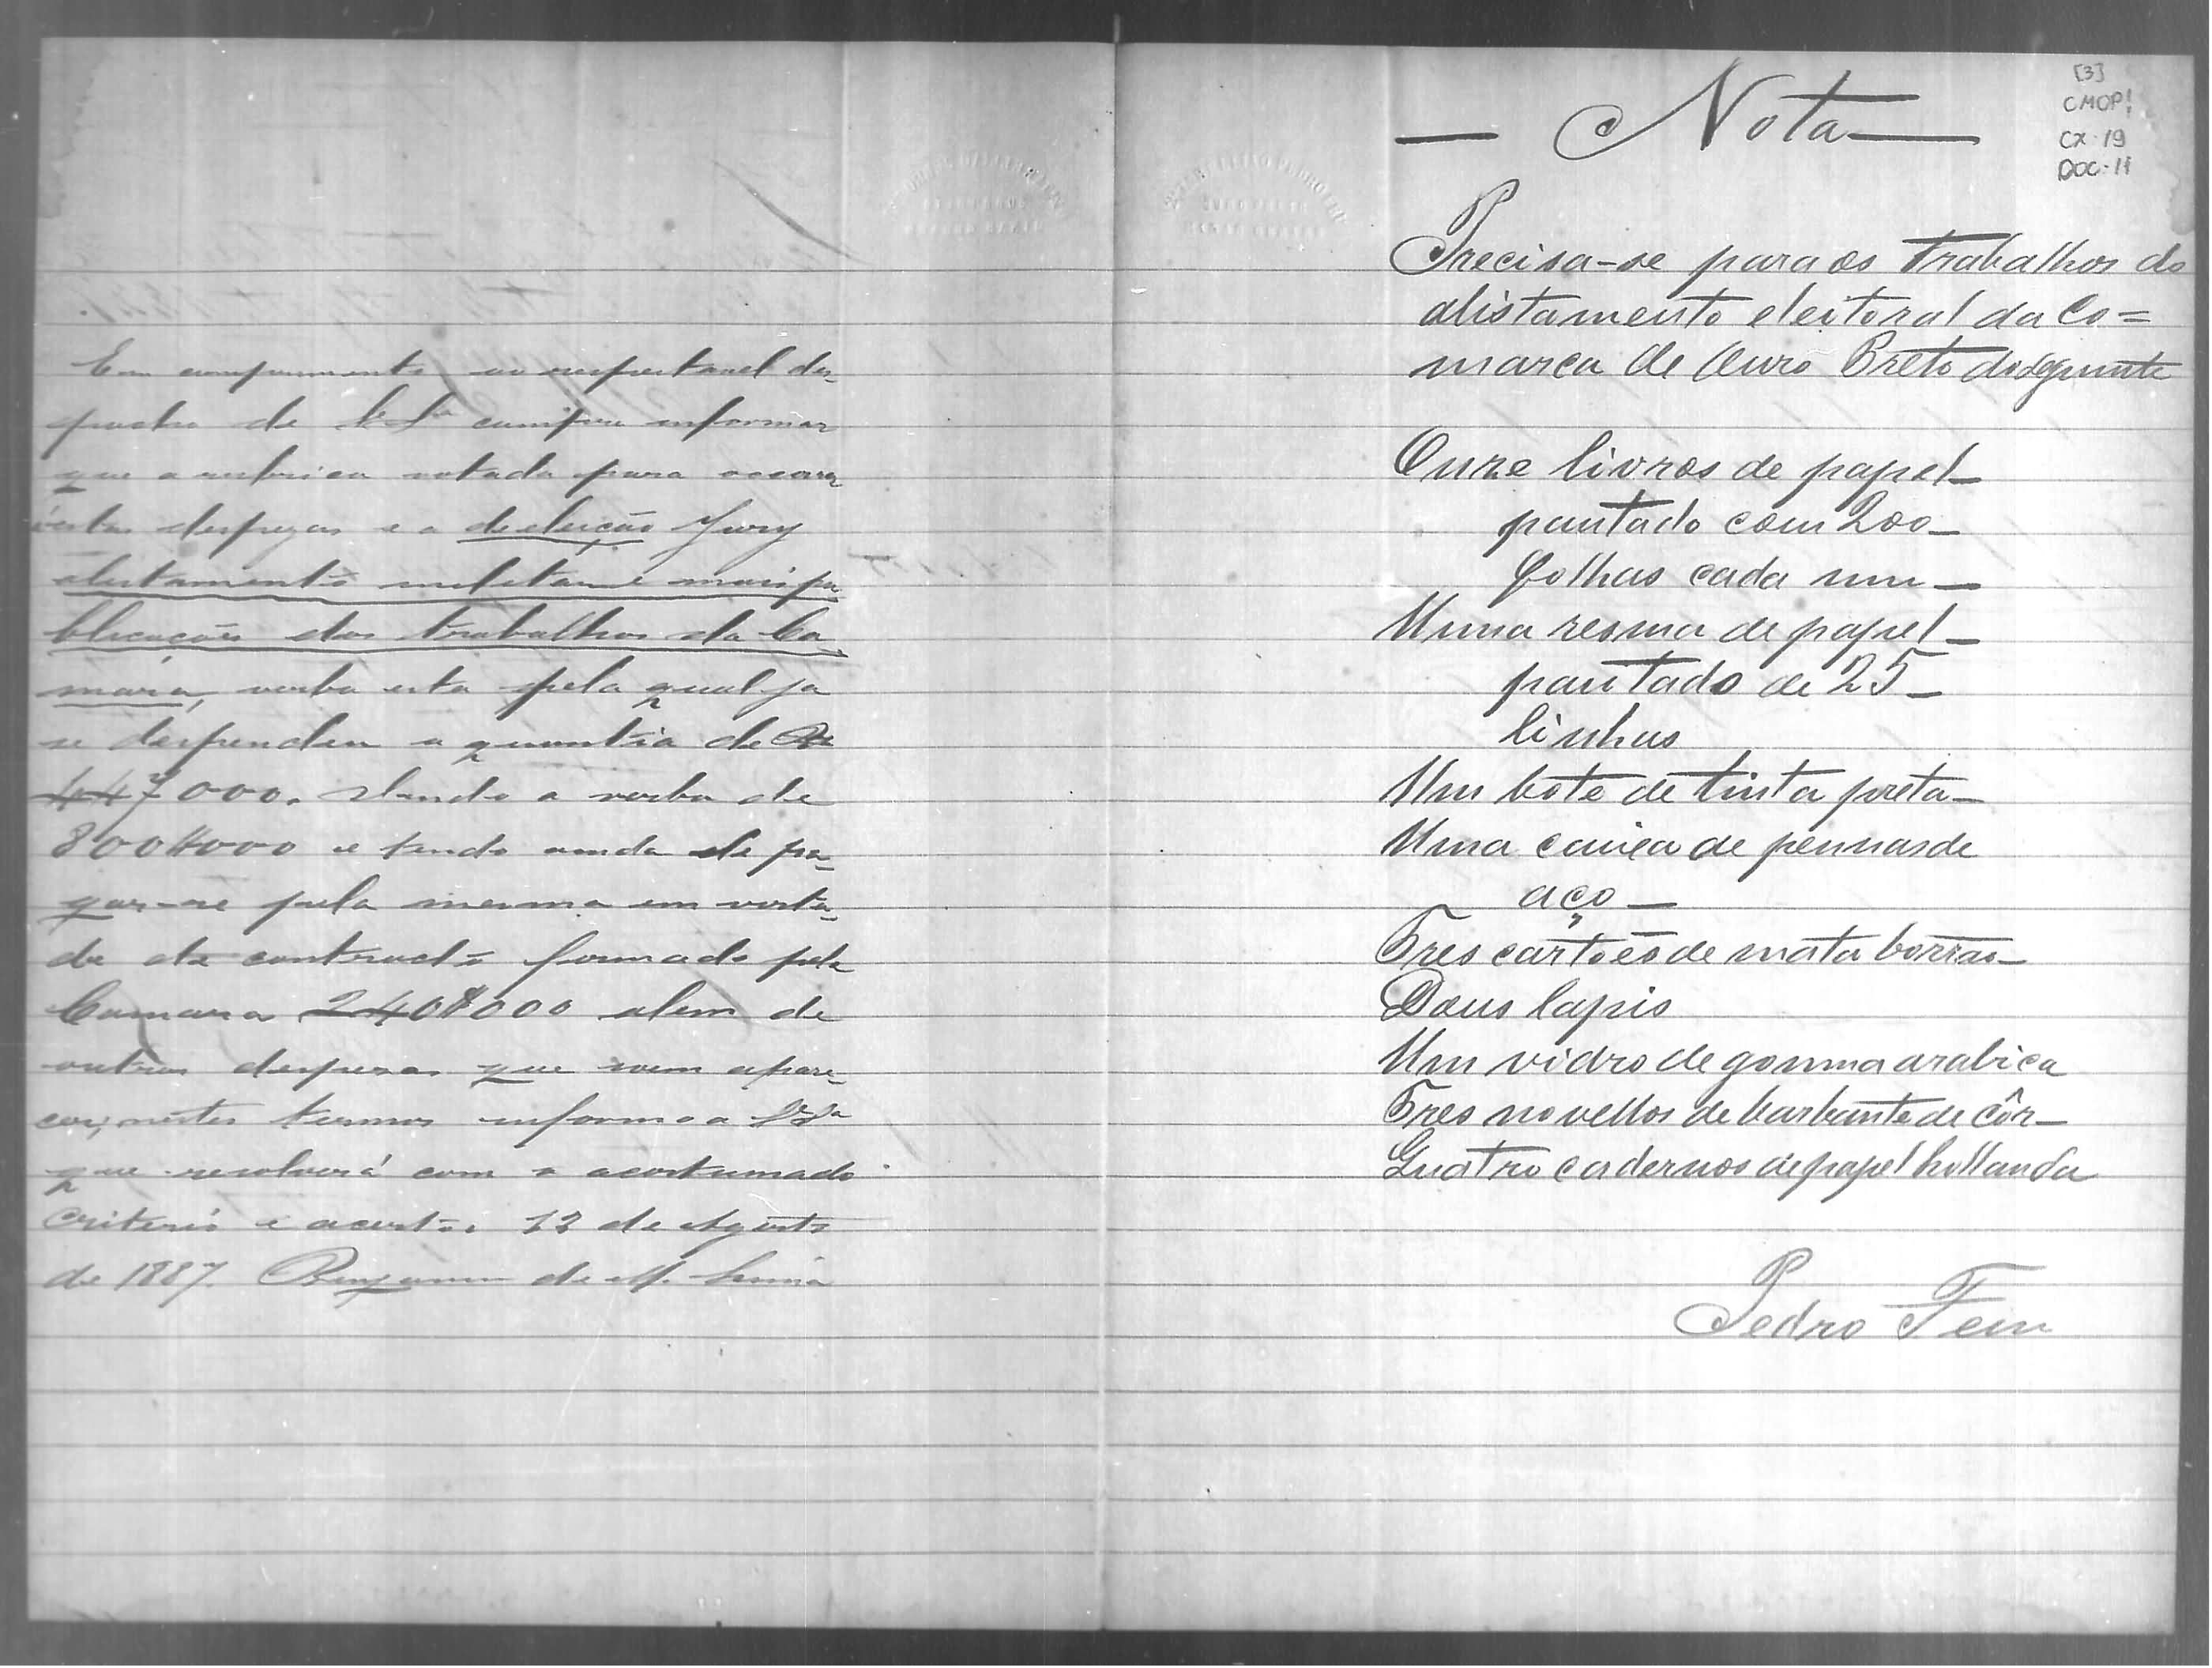 Em cumprimento ao respeitavel des-
pacho de V. Sª cumpre informar
que a rubrica votada para occorrer
éstas despezas e a de eleição Jury
alistamento militar e mais pu-
blicações dos trabalhos da Ca-
mara, verba esta pela qual ja
se despenden a quantia de Rs
447$000. Sendo a verba de
800$000 e tendo ainda de pa-
gar-se pela mesma em virtu-
de de contracto firmado pela
Camara 240$000 alem de
outras despesas que
nestes termos informo a V. Sª
que resolverá com o acostumado
criterio e acerto. 12 de Agosto
de 1887. Benjamin de M.
— Nota —
[3]
CMOP
CX-19
DOC-11
Precisa-se para os trabalhos do
alistamento eleitoral da Co=
marca de Ouro Preto do seguinte
Onze livros de papel—
pautado com 200—
folhas cada um—
Uma resma de papel—
pautado de 25—
linhas
Um bote de tinta preta—
Uma caixa de pennas de
aço—
Tres cartões de mata borrao—
Dous lapis
Um vidro de gomma arabica
Tres novellos de barbante de côr—
Quatro cadernos de papel hollanda
Pedro